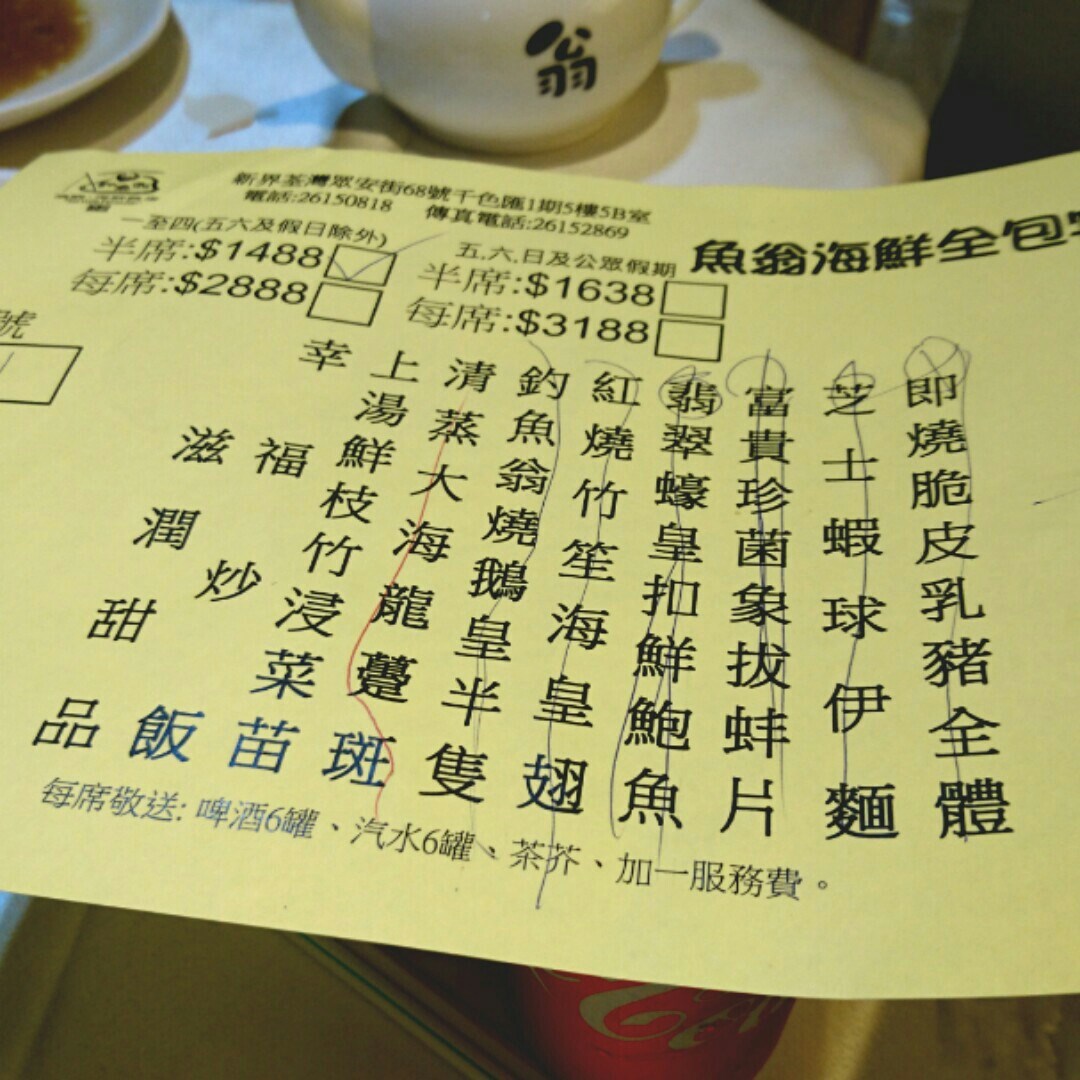 翁
新界荃灣眾安街68號千色匯1期5樓5B室
電話:26150818 傳真電話:26152869
一至四(五六及假日除外)
半席:$1488
每席:$2888
五,六,日及公眾假期
半席:$1638
每席:$3188
魚翁海鮮全包
號
即燒脆皮乳豬全體
芝士蝦球伊麵
富貴珍菌象拔蚌片
翡翠蠔皇扣鮮鮑魚
紅燒竹笙海皇翅
釣魚翁燒鵝皇半隻
清蒸大海龍躉斑
上湯鮮枝竹浸菜苗
幸福炒飯
滋潤甜品
每席敬送: 啤酒6罐、汽水6罐、茶芥、加一服務費。